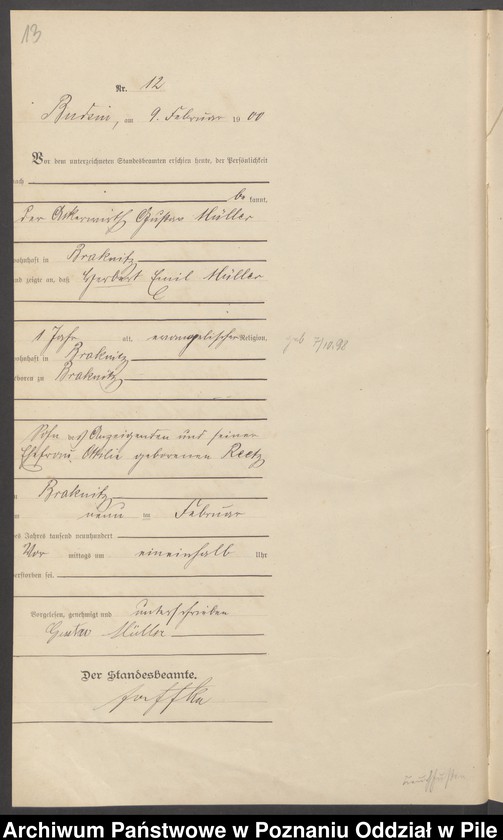 13
Nr. 12
Budsin, am 9. Februar 1900
Vor dem unterzeichneten Standesbeamten erschien heute, der Persönlichkeit
nach
be kannt,
der Ackerwirth Gustav Müller
wohnhaft in Braknitz
und zeigte an, daß Herbert Emil Müller
1 Jahr alt, evangelischer Religion,
wohnhaft in Braknitz
geboren zu Braknitz
geb 7/10.98
Sohn des Anzeigenden und seiner
Ehefrau Ottilie geborenen Reetz
Braknitz
neun ten Februar
des Jahres tausend neunhundert
Vor mittags um eineinhalb Uhr
verstorben sei.
Vorgelesen, genehmigt und unterschrieben
Gustav Müller
Der Standesbeamte.
Archiwum Państwowe w Poznaniu Oddział w Pile